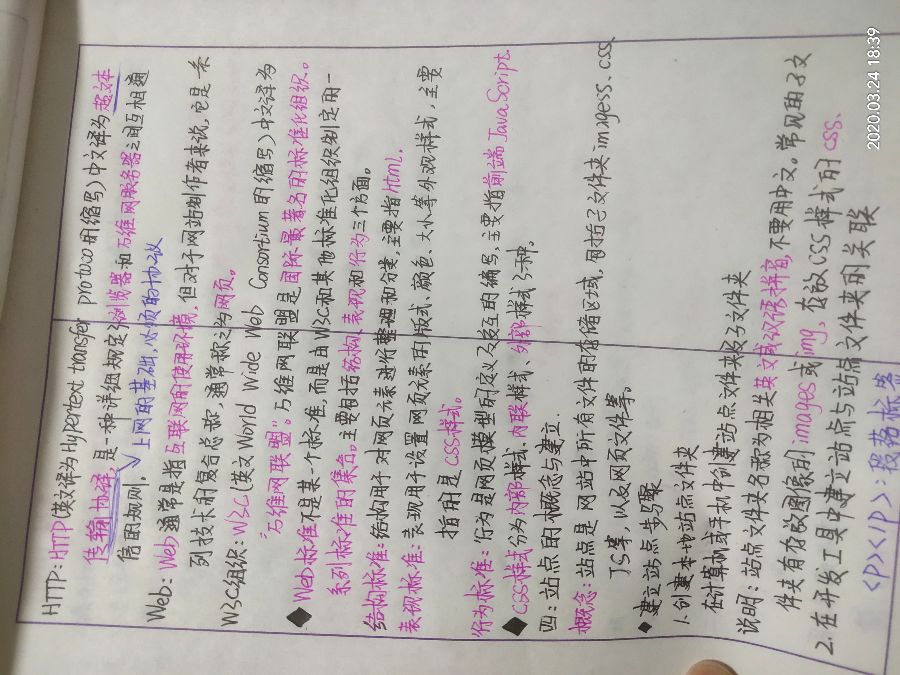 HTTP:HTTP(英文译为Hypertext transfer protoco的缩写)中文译为超文本
传输协译,是一种详细规定了浏览器和万维网服务器之间互相通
信的规则,√上网的基础,必须的协议
Web:Web通常是指互联网的使用环境,但对于网站制作者来说,它是一系
列技术的复合总称 通常称之为网页。
W3C组织:W3C(英文World Wide Web Consortium的缩写)中文译为
“万维网联盟”。万维网联盟是国际最著名的标准化组织。
◆Web标准不是某一个标准,而是由W3C和其他标准化组织制定的一
系列标准的集合。主要包括结构 表现和行为三个方面。
结构标准:结构用于对网页元素进行整理和分类,主要指Html.
表现标准:表现用于设置网页元素的版式、颜色、大小等外观样式,主要
指的是CSS样式。
行为标准:行为是网页模型的定义及交互的编写,主要指前端JavaScript.
◆CSS样式分为内部样式,内联样式,外部样式3种。
四:站点的概念与建立.
概念:站点是网站中所有文件的存储区域,包括子文件夹images、css、
JS等,以及网页文件等。
◆建立站点步骤
1.创建本地站点文件夹
在计算机或手机中创建站点文件夹及子文件夹
说明:站点文件夹名称为相关英文或汉语拼音,不要用中文。常见的子文
件夹有存放图像的images或img,存放CSS样式的css、
2.在开发工具中建立站点与站点文件夹的关联
<p><p>:段落标签
2020.03.24 18:39